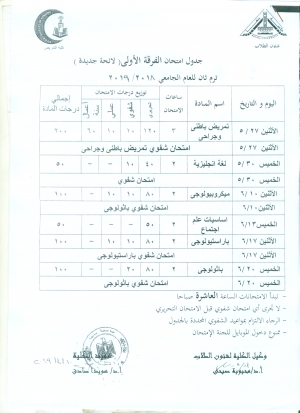 شئون الطلاب
جدول امتحان الفرقة الأولى ( لائحة جديدة )
ترم ثان للعام الجامعي ٢٠١٨ / ٢٠١٩
اليوم و التاريخ اسم المادة ساعات الامتحان توزيع درجات الامتحان إجمالي درجات المادة
تحريرى شفوي عملى أعمال سنة
الأثنين ٢٧ / ٥ تمريض باطنى وجراحى ٣ ١٢٠ ١٠ ١٠ ٦٠ ٢٠٠
الأثنين ٢٧ / ٥ امتحان شفوي تمريض باطنى وجراحى
الخميس ٣٠ / ٥ لغة انجليزية ٢ ٤٠ ١٠ – – ٥٠
الخميس ٣٠ / ٥ امتحان شفوي
الأثنين ١٠ / ٦ ميكروبيولوجى ٢ ٨٠ ١٠ ١٠ – ١٠٠
الأثنين ١٠ / ٦ امتحان شفوي باثولوجى
الخميس ١٣ / ٦ اساسيات علم اجتماع ٢ ٥٠ – – – ٥٠
الأثنين ١٧ / ٦ باراسيتولوجى ٢ ٨٠ ١٠ ١٠ – ١٠٠
الأثنين ١٧ / ٦ امتحان شفوي باراسيتولوجى
الخميس ٢٠ / ٦ باثولوجى ٢ ٨٠ ٢٠ – – ١٠٠
الخميس ٢٠ / ٦ امتحان شفوي باثولوجى
- تبدأ الامتحانات الساعة العاشرة صباحا
- لا تجرى أي امتحان شفوي قبل الامتحان التحريرى
- الرجاء الالتزام بمواعيد الشفوي المحددة بالجدول
- ممنوع دخول الموبايل للجنة الإمتحان
وكيل الكلية لشئون الطلاب
عميد الكلية